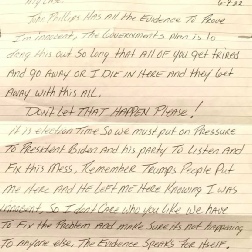 6-4-22
Jim Phillips Has all the Evidence To Prove
I'm innocent, The Government's plan is to
drag this out So long that All of you get tired
And go Away or I Die in Here and they Get
Away with this All.
Don't let THAT HAPPEN Please!
It is election Time So we must put on Pressure
To President Biden And his party To Listen And
Fix this Mess. Remember Trumps People Put
me Here And He Left me Here Knowing I was
innocent, So I dont Care who you like we have
To Fix the Problem And make Sure its not happening
To Anyone else. The Evidence Speaks For itself,